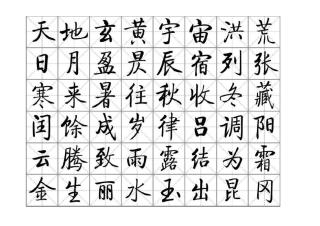 天地玄黄宇宙洪荒
日月盈昃辰宿列张
寒来暑往秋收冬藏
闰馀成岁律吕调阳
云腾致雨露结为霜
金生丽水玉出昆冈